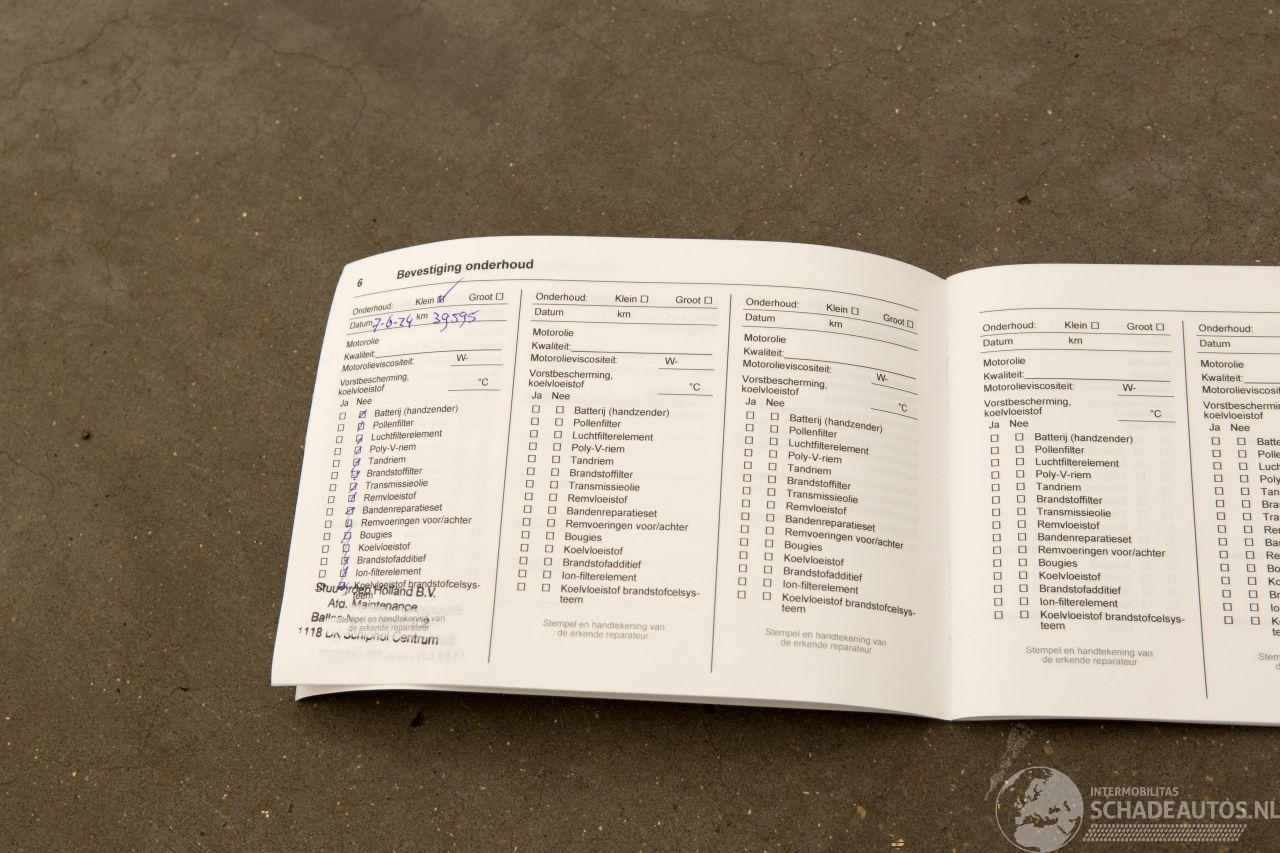 6 Bevestiging onderhoud
Onderhoud: Klein Groot
Datum 7-6-24 km 39595
Motorolie
Kwaliteit:
Motorolieviscositeit: W-
Vorstbescherming,
koelvloeistof °C
Ja Nee
Batterij (handzender)
Pollenfilter
Luchtfilterelement
Poly-V-riem
Tandriem
Brandstoffilter
Transmissieolie
Remvloeistof
Bandenreparatieset
Remvoeringen voor/achter
Bougies
Koelvloeistof
Brandstofadditief
Ion-filterelement
Koelvloeistof brandstofcelsys-
teem
Holland B.V.
Maintenance
Stempel en handtekening van
de erkende reparateur
1118 DK Schiphol Centrum
Onderhoud: Klein Groot
Datum km
Motorolie
Kwaliteit:
Motorolieviscositeit: W-
Vorstbescherming,
koelvloeistof °C
Ja Nee
Batterij (handzender)
Pollenfilter
Luchtfilterelement
Poly-V-riem
Tandriem
Brandstoffilter
Transmissieolie
Remvloeistof
Bandenreparatieset
Remvoeringen voor/achter
Bougies
Koelvloeistof
Brandstofadditief
Ion-filterelement
Koelvloeistof brandstofcelsys-
teem
Stempel en handtekening van
de erkende reparateur
Onderhoud: Klein Groot
Datum km
Motorolie
Kwaliteit:
Motorolieviscositeit: W-
Vorstbescherming,
koelvloeistof °C
Ja Nee
Batterij (handzender)
Pollenfilter
Luchtfilterelement
Poly-V-riem
Tandriem
Brandstoffilter
Transmissieolie
Remvloeistof
Bandenreparatieset
Remvoeringen voor/achter
Bougies
Koelvloeistof
Brandstofadditief
Ion-filterelement
Koelvloeistof brandstofcelsys-
teem
Stempel en handtekening van
de erkende reparateur
Onderhoud: Klein Groot
Datum km
Motorolie
Kwaliteit:
Motorolieviscositeit: W-
Vorstbescherming,
koelvloeistof °C
Ja Nee
Batterij (handzender)
Pollenfilter
Luchtfilterelement
Poly-V-riem
Tandriem
Brandstoffilter
Transmissieolie
Remvloeistof
Bandenreparatieset
Remvoeringen voor/achter
Bougies
Koelvloeistof
Brandstofadditief
Ion-filterelement
Koelvloeistof brandstofcelsys-
teem
Stempel en handtekening van
de erkende reparateur
Onderhoud:
Datum
Motorolie
Kwaliteit:
Ja Nee
INTERMOBILITAS
SCHADEAUTOS.NL